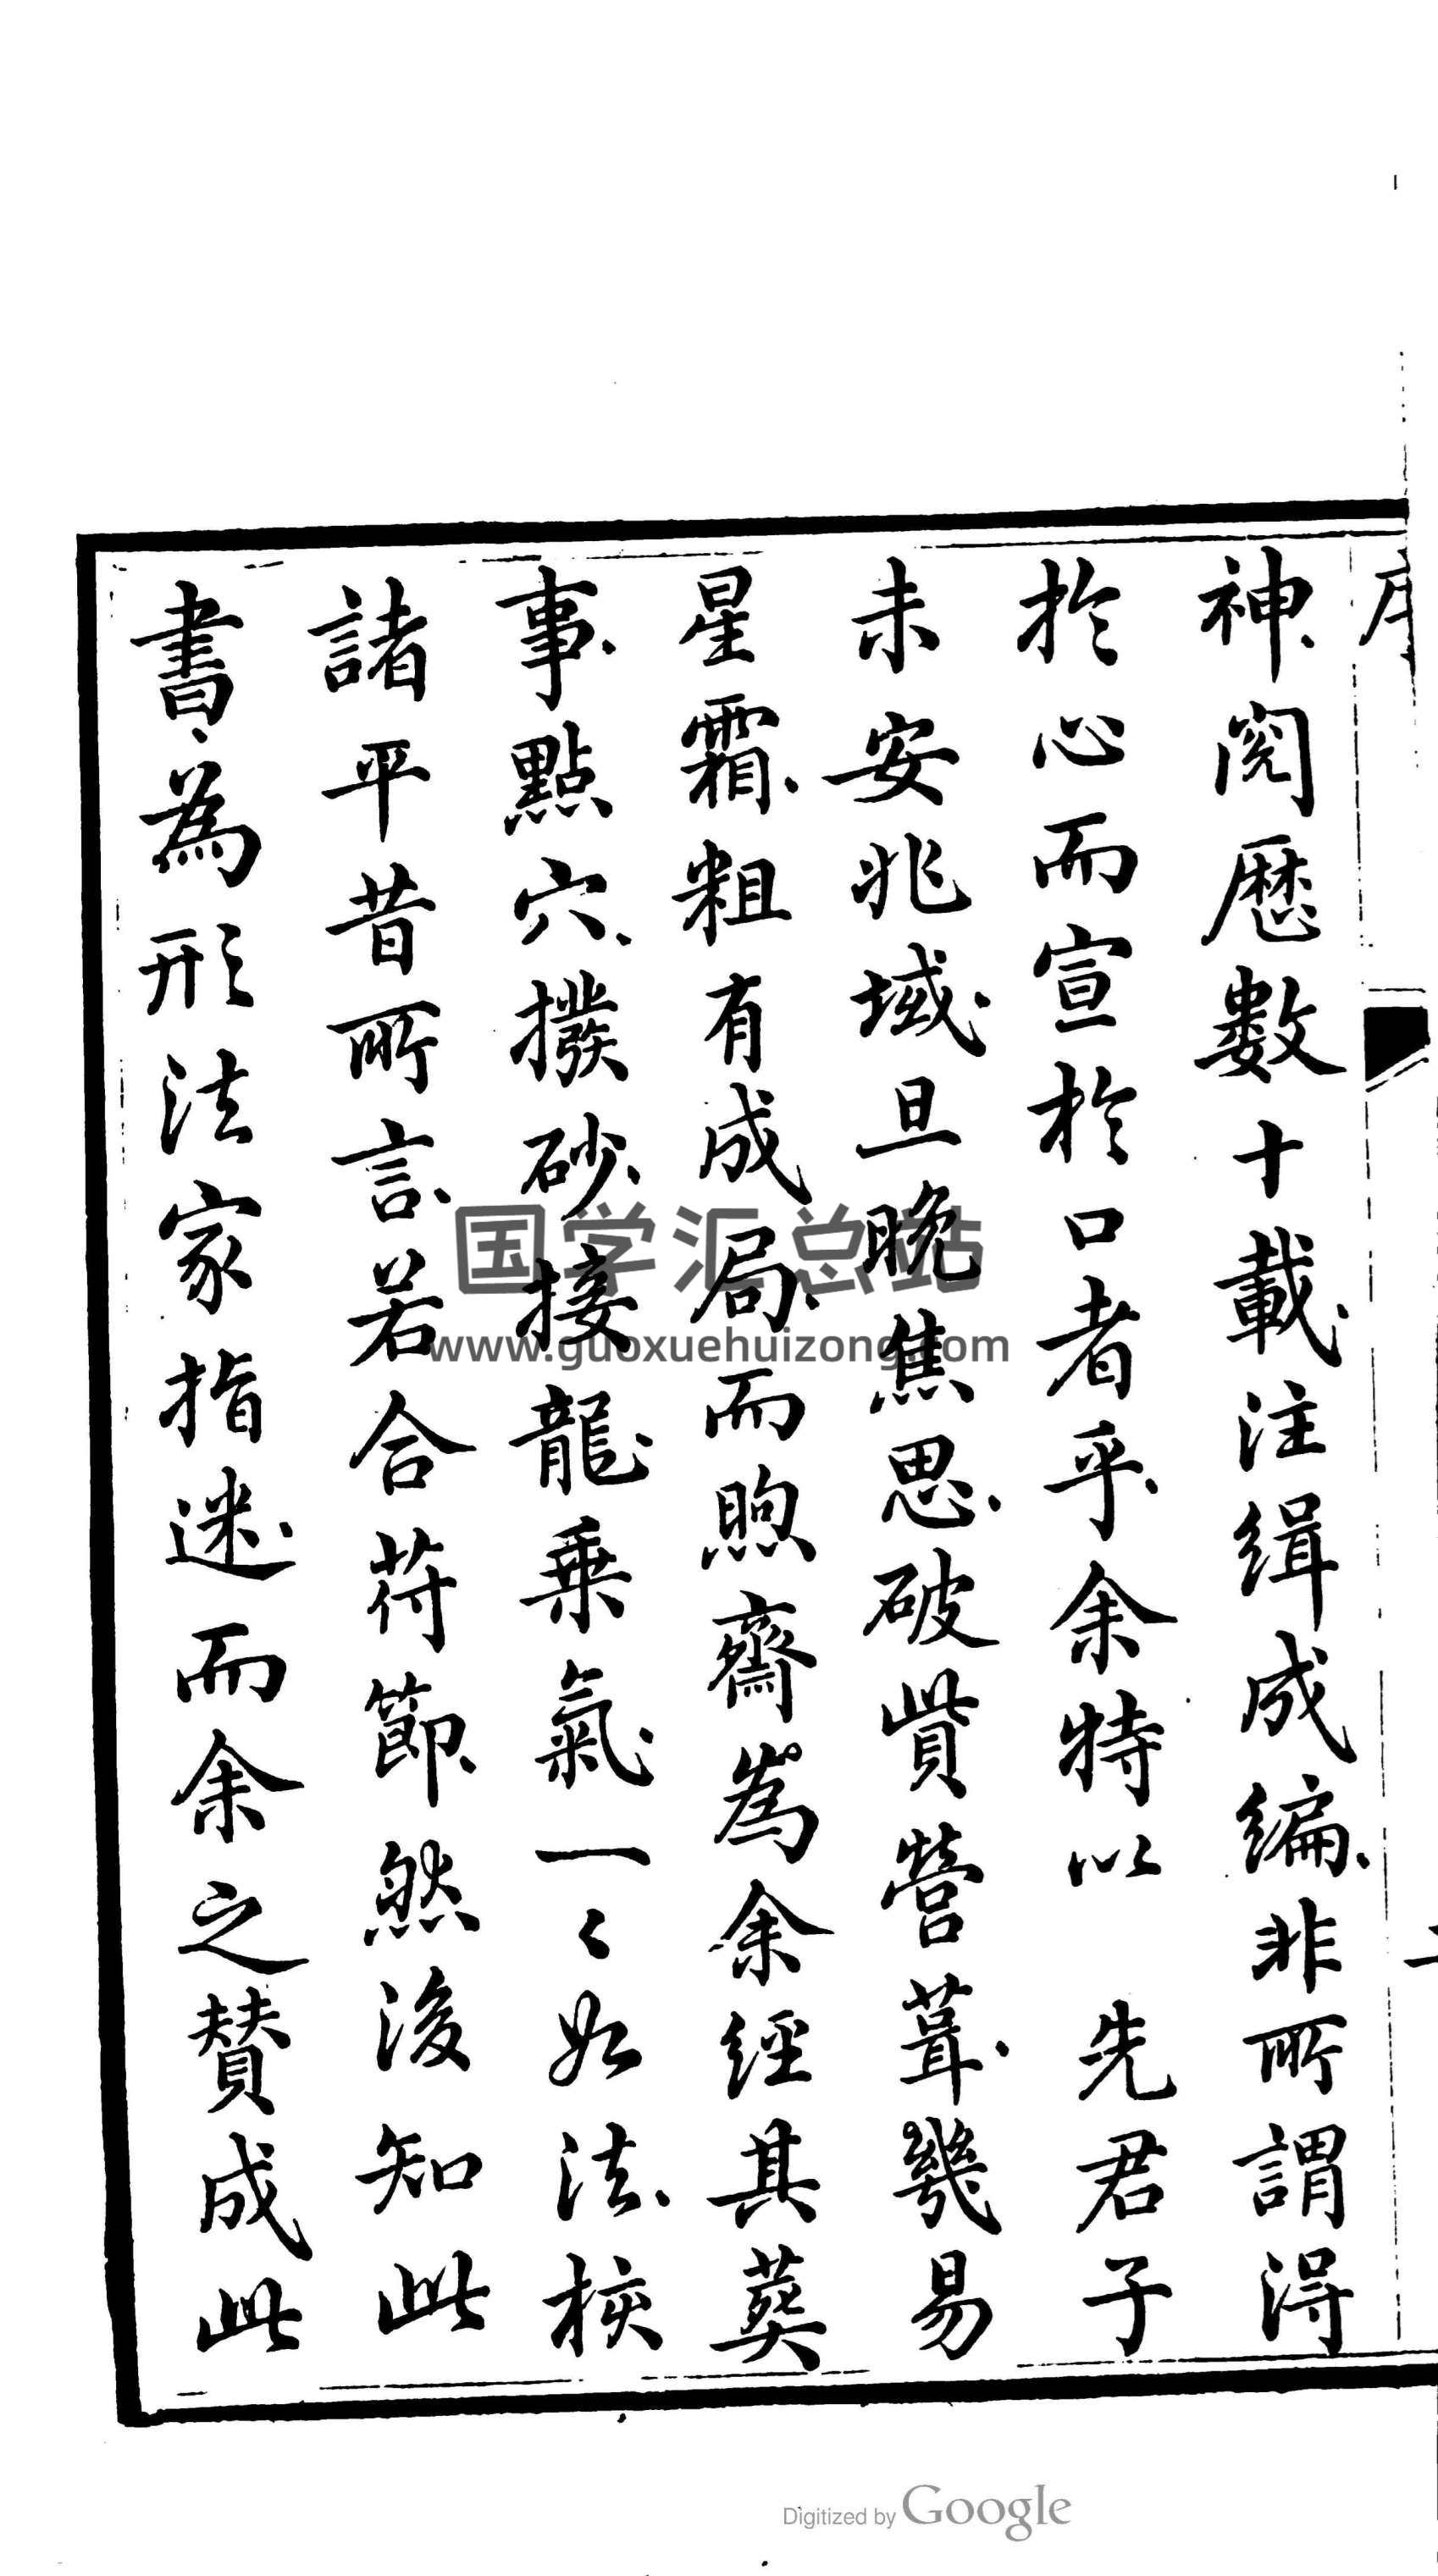 序
神閱歷數十載注緝成編非所謂得
於心而宣於口者乎余特以 先君子
未安兆域旦晚焦思破貲營葺幾易
星霜粗有成局而煦齋為余經其葬
事點穴撥砂接龍乘氣一〻如法挍
諸平昔所言若合符節然後知此
書為形法家指迷而余之贊成此
国学汇总站
www.guoxuehuizong.com
Digitized by Google